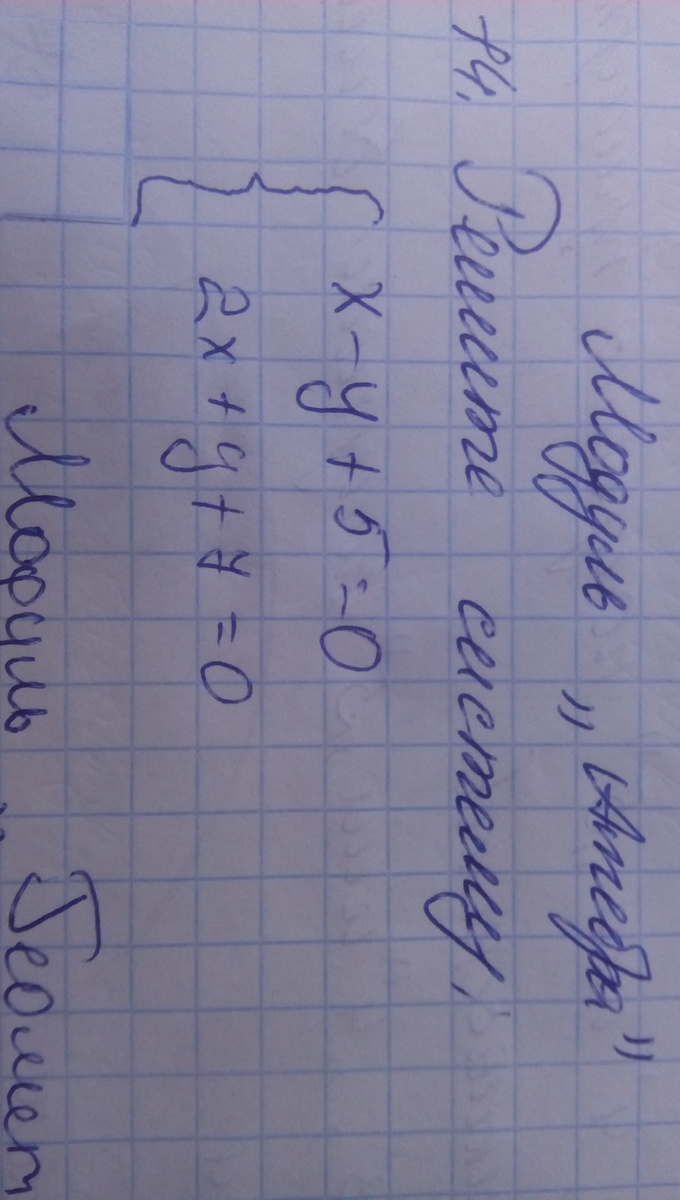 Модуль „Алгебра"
14. Решите систему,
x - y + 5 = 0
2x + y + 4 = 0
Модуль „Геомет